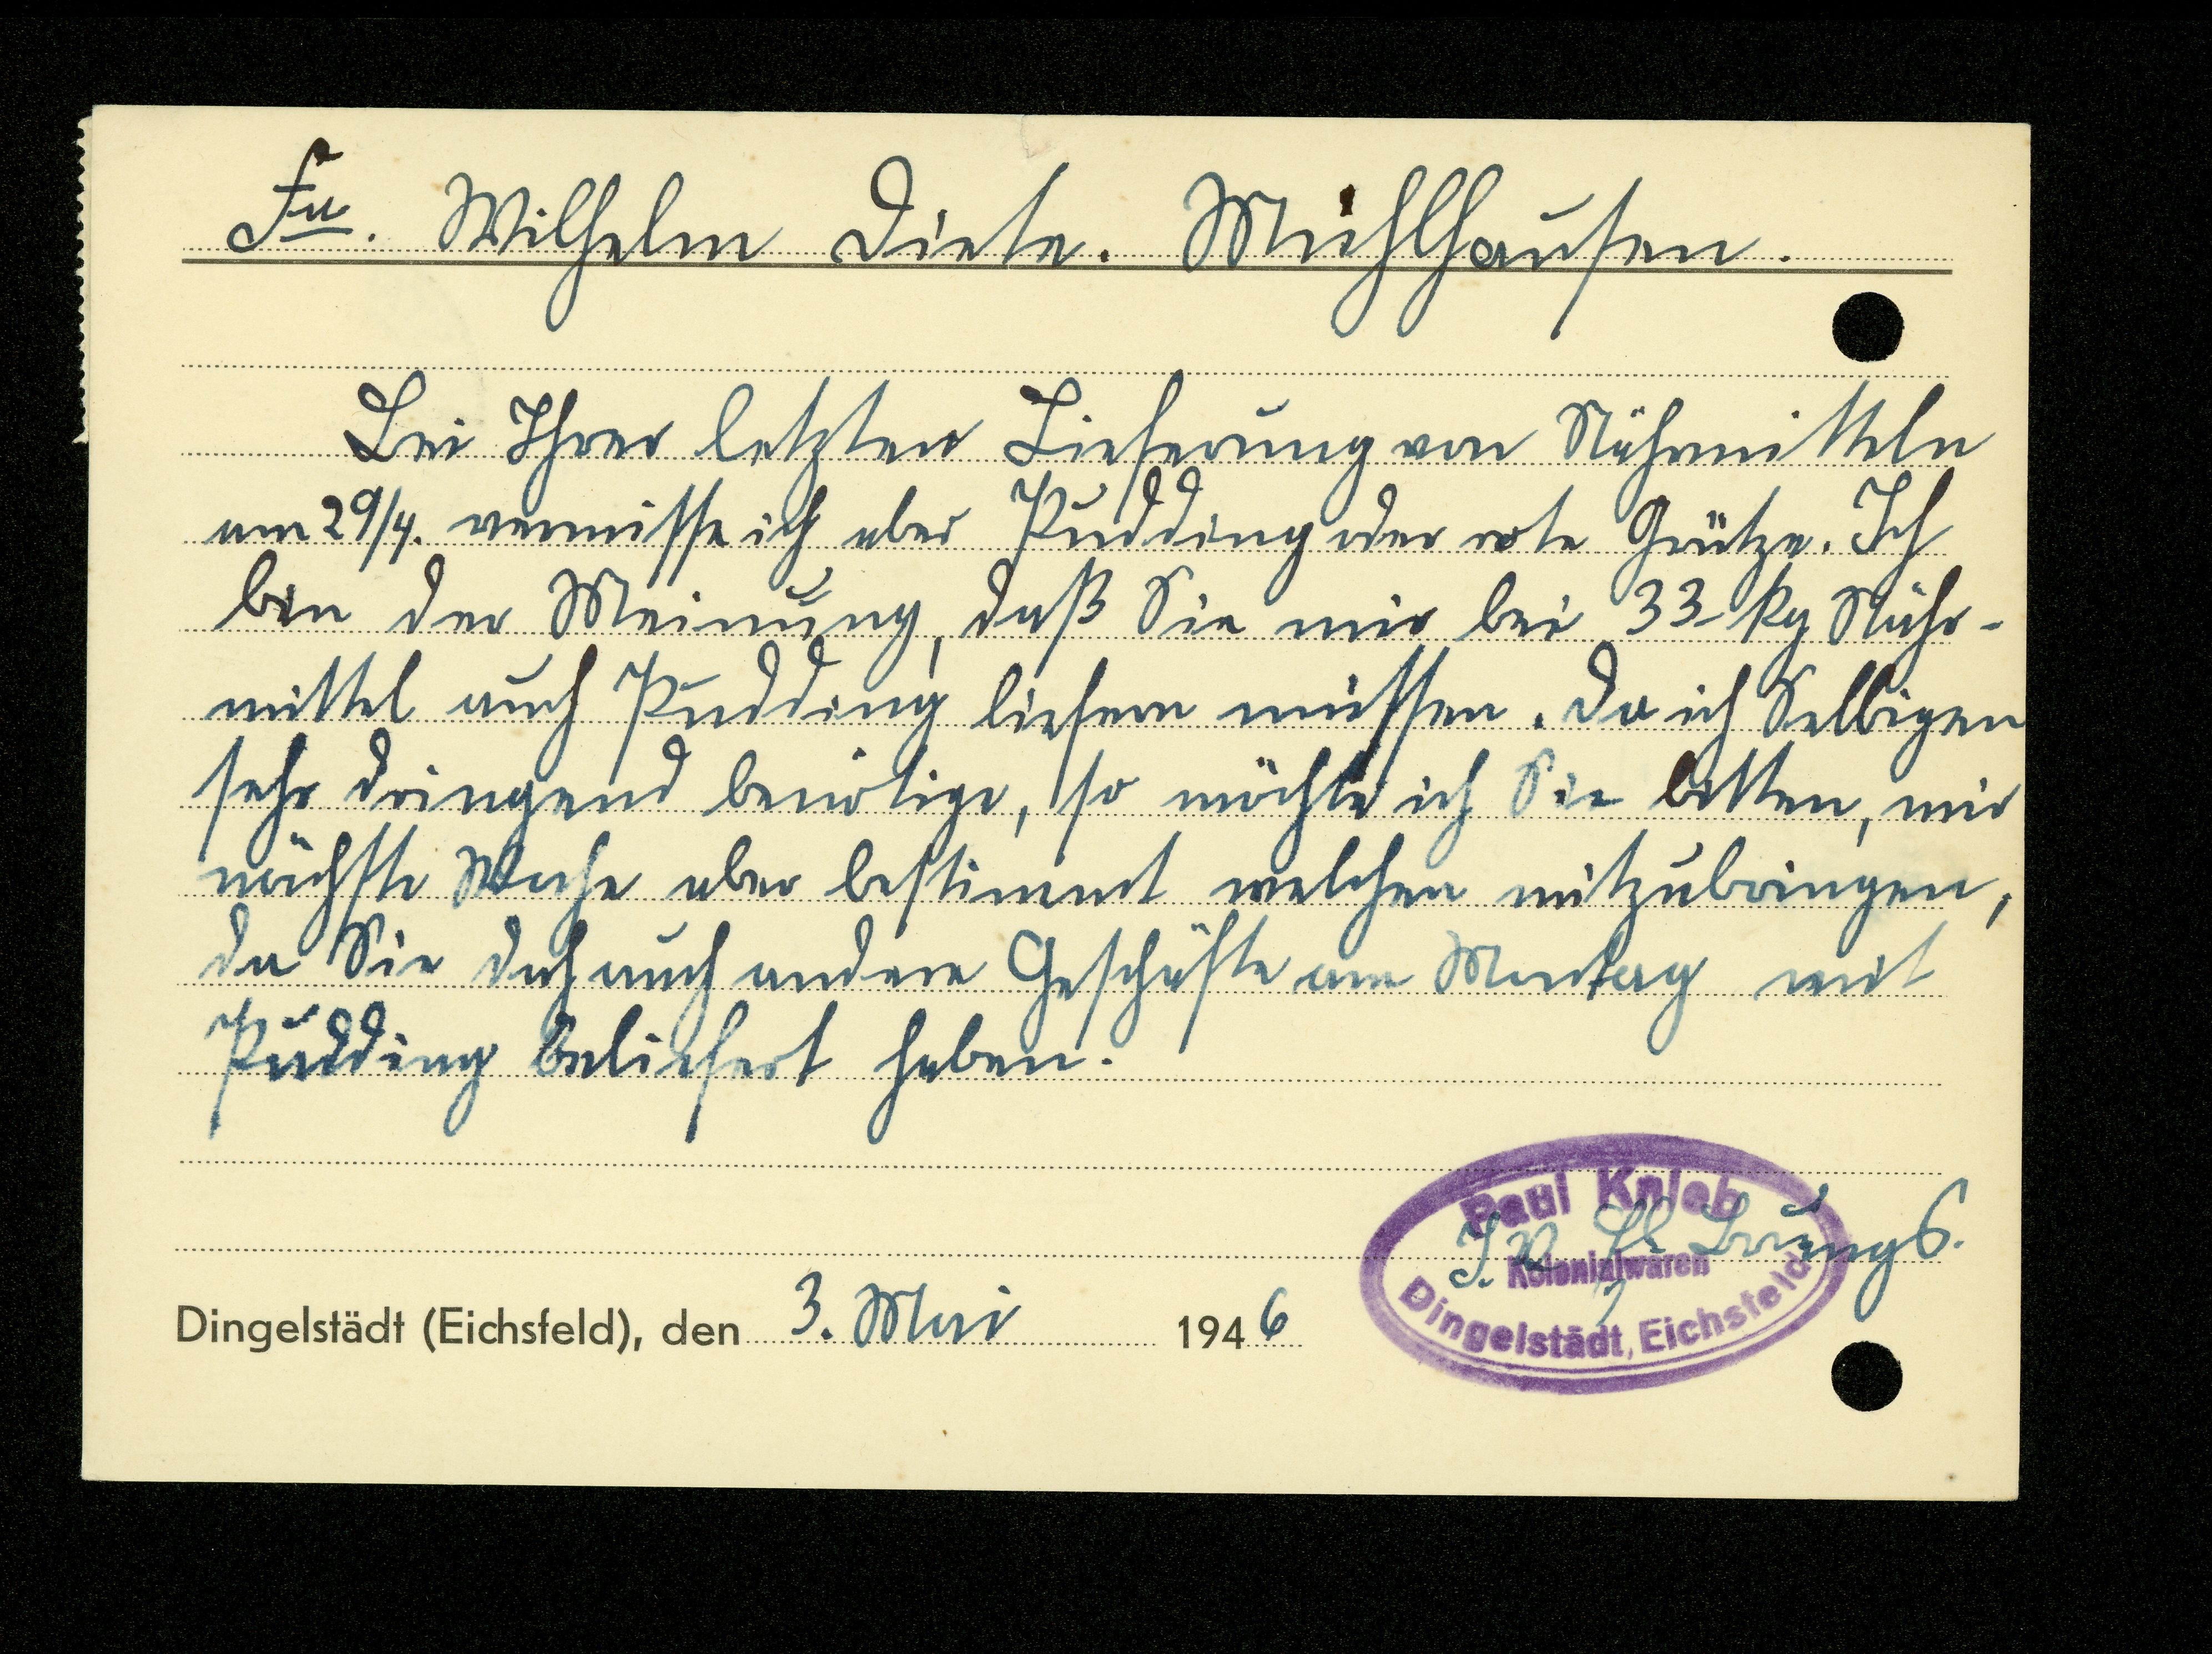 Fa. Wilhelm Diete. Mühlhausen.
Bei Ihrer letzten Lieferung von Nährmitteln
am 29/4. vermisse ich aber Pudding oder rote Grütze. Ich
bin der Meinung, daß Sie mir bei 33 kg Nähr-
mittel auch Pudding liefern müssen. Da ich Selbigen
sehr dringend benötige, so möchte ich Sie bitten, mir
nächste Woche aber bestimmt welchen mitzubringen,
da Sie doch auch andere Geschäfte am Montag mit
Pudding beliefert haben.
Paul Knieb
Kolonialwaren
Dingelstädt, Eichsfeld
J. V.
Dingelstädt (Eichsfeld), den 3. Mai 1946